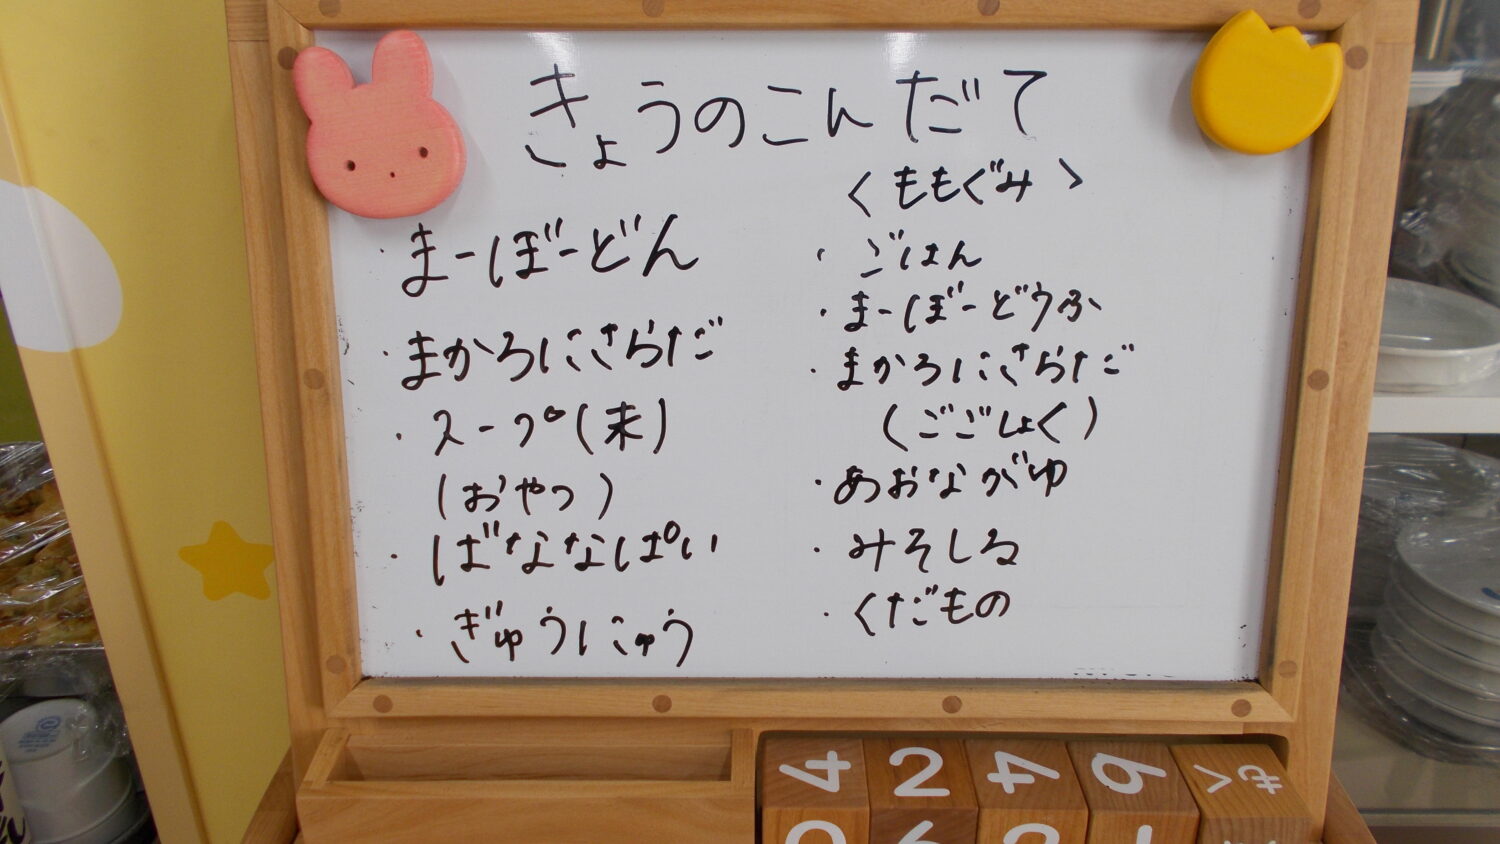 きょうのこんだて
・まーぼーどん
・まかろにさらだ
・スープ(末)
(おやつ)
・ばななぱい
・ぎゅうにゅう
〈ももぐみ〉
・ごはん
・まーぼーどうふ
・まかろにさらだ
(ごごしょく)
・あおながゆ
・みそしる
・くだもの
4 2 4 6 きく